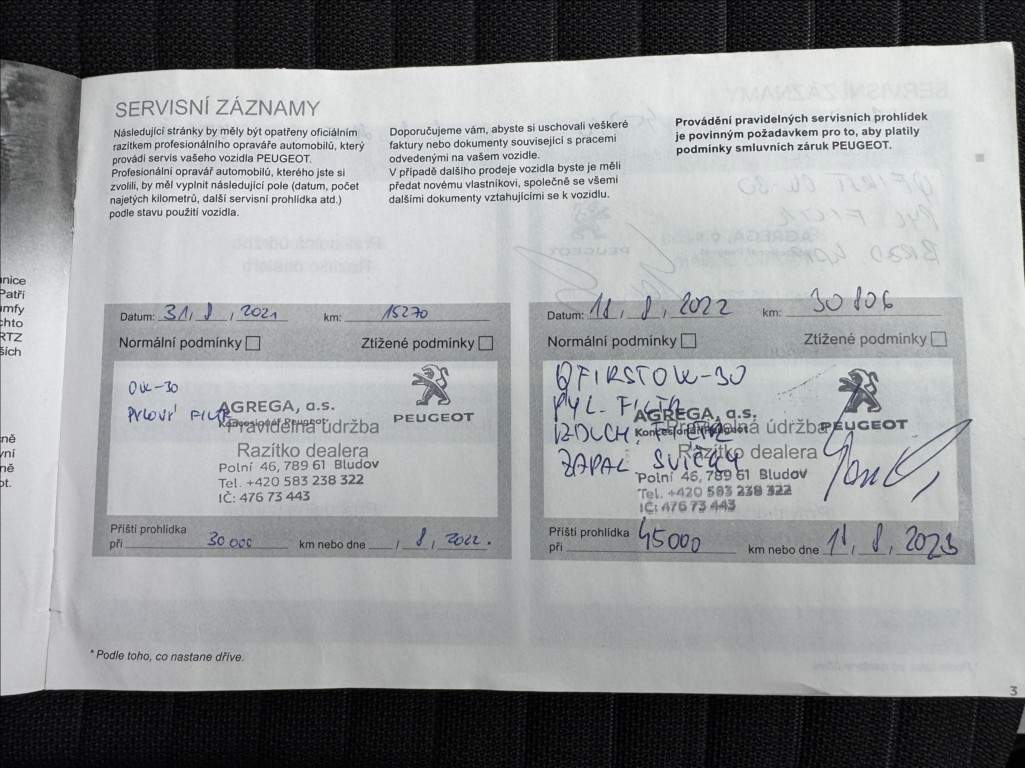 SERVISNÍ ZÁZNAMY
Následující stránky by měly být opatřeny oficiálním
razítkem profesionálního opraváře automobilů, který
provádí servis vašeho vozidla PEUGEOT.
Profesionální opravář automobilů, kterého jste si
zvolili, by měl vyplnit následující pole (datum, počet
najetých kilometrů, další servisní prohlídka atd.)
podle stavu použití vozidla.
Doporučujeme vám, abyste si uschovali veškeré
faktury nebo dokumenty související s pracemi
odvedenými na vašem vozidle.
V případě dalšího prodeje vozidla byste je měli
předat novému vlastníkovi, společně se všemi
dalšími dokumenty vztahujícími se k vozidlu.
Provádění pravidelných servisních prohlídek
je povinným požadavkem pro to, aby platily
podmínky smluvních záruk PEUGEOT.
nice
Patří
mfy
chto
RTZ
ších
ně
vní
ně
ot.
Datum: 31, 8, 2021 km: 15270
Normální podmínky Ztížené podmínky
0W-30
PYLOVÝ FILTR
AGREGA, a.s.
Koncesionář Peugeot
Pravidelná údržba
Razítko dealera
Polní 46, 789 61 Bludov
Tel. +420 583 238 322
IČ: 476 73 443
PEUGEOT
Příští prohlídka
při 30 000 km nebo dne , 8, 2022.
Datum: 11, 8, 2022 km: 30806
Normální podmínky Ztížené podmínky
QFIRST 0W-30
PYL. FILTR
VZDUCH. FILTR
ZAPAL. SVÍČKY
AGREGA, a.s.
Pravidelná údržba
Razítko dealera
Polní 46, 789 61 Bludov
Tel. +420 583 238 322
IČ: 476 73 443
PEUGEOT
Příští prohlídka
při 45000 km nebo dne 11, 8, 2023
* Podle toho, co nastane dříve.
3